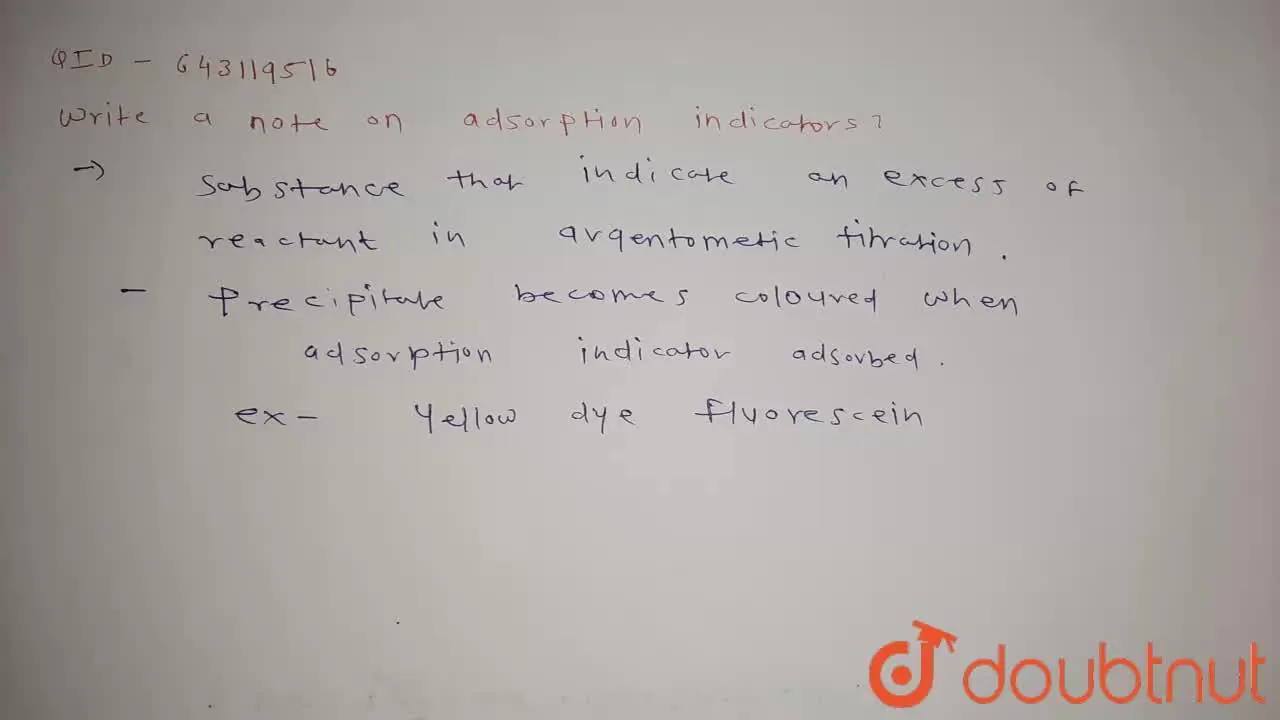 QID - 643119516
Write a note on adsorption indicators?
→ Substance that indicate an excess of
reactant in argentometic titration.
- Precipitate becomes coloured when
adsorption indicator adsorbed.
ex- Yellow dye fluorescein
doubtnut